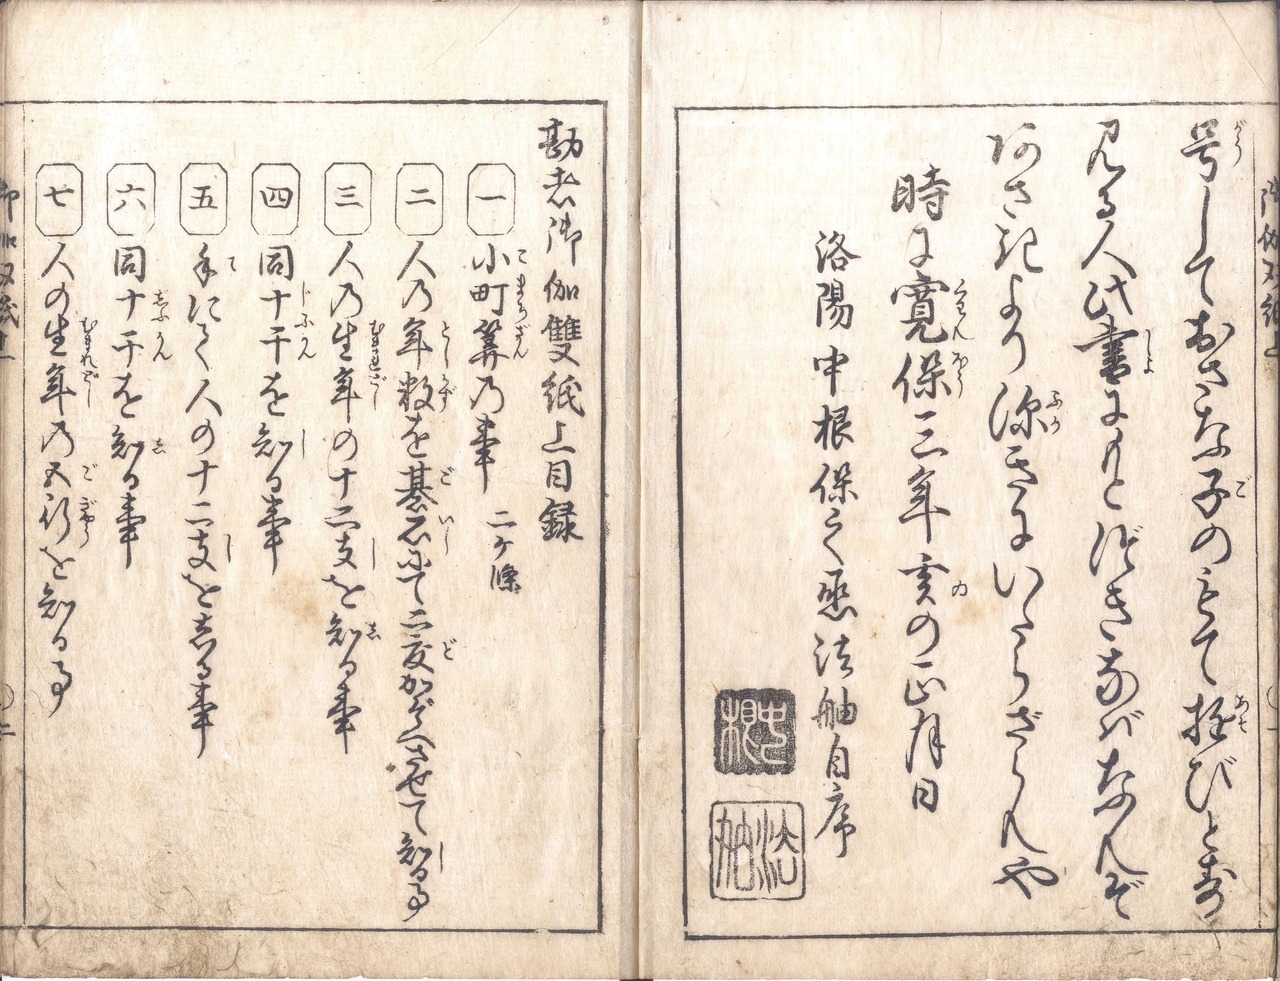 号して おさな子のもて遊びと寿
見る人此書にもとづきなばなんぞ
あさきより深きにいたらざらんや
時に寛保三年亥の正月日
洛陽中根保之丞法舳自序
中根
法舳
勘者御伽雙紙上目録
一 小町筭乃事 二ケ條
二 人乃年数を碁石にて二度かぞへさせて知る事
三 人乃生年の十二支を知る事
四 同十干を知る事
五 手にて人の十二支を志る事
六 同十干を知る事
七 人の生年乃五行を知る事